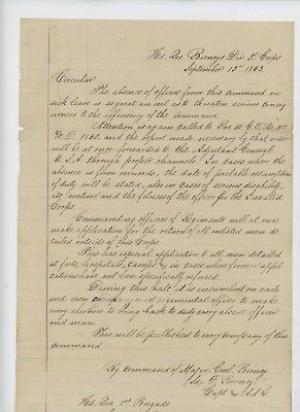 Hd. Qrs Birneys Div 3d Corps
September 13th 1863
Circular
The absence of officers from this command on
sick leave is so great an evil as to threaten serious
to the efficiency of the command
Attention is again called to Par of G.O. No.
W.D. 1862. and the report made necessary by that order
will be at once forwarded to the Adjutant General
U.S.A through proper channels. In cases where the
absence is from wounds, the date of probable resumption
of duty will be stated, also in cases of serious disability,
its nature and the fitness of the officer for the Invalid
Corps
Commanding officers of Regiments will at once
make application for the return of all enlisted men de-
tailed outside of this Corps
This has especial application to all men detailed
at forts, hospitals, camps & in cases where former appli-
cations have not been specifically refused.
During this halt it is incumbent on each
and every and regimental officer to make
every exertion to bring back to duty every absent officer
and man.
This will be published to every company of this
command
By command of Major Genl. Birney
Birney
Capt & A.A.G
Hd. Qrs. 1st Brigade